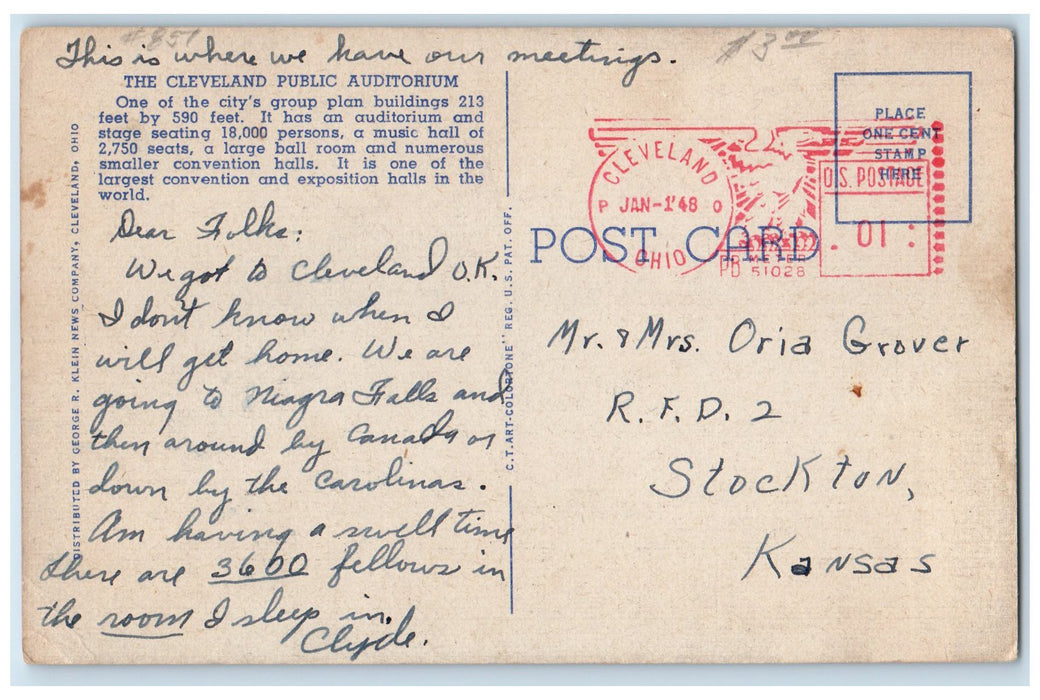 #851
$3.00
This is where we have our meetings.
THE CLEVELAND PUBLIC AUDITORIUM
One of the city's group plan buildings 213
feet by 590 feet. It has an auditorium and
stage seating 18,000 persons, a music hall of
2,750 seats, a large ball room and numerous
smaller convention halls. It is one of the
largest convention and exposition halls in the
world.
Dear Folks:
We got to Cleveland O.K.
I don't know when I
will get home. We are
going to Niagra Falls and
then around by Canada or
down by the Carolinas.
Am having a swell time
there are 3600 fellows in
the room I sleep in.
Clyde.
DISTRIBUTED BY GEORGE R. KLEIN NEWS COMPANY, CLEVELAND, OHIO
C.T. ART-COLORTONE" REG. U.S. PAT. OFF.
POST CARD
PLACE
ONE CENT
STAMP
HERE
CLEVELAND
P JAN-1'48 O
OHIO
U.S. POSTAGE
.01
PB METER
51028
Mr. & Mrs. Oria Grover
R.F.D. 2
Stockton,
Kansas